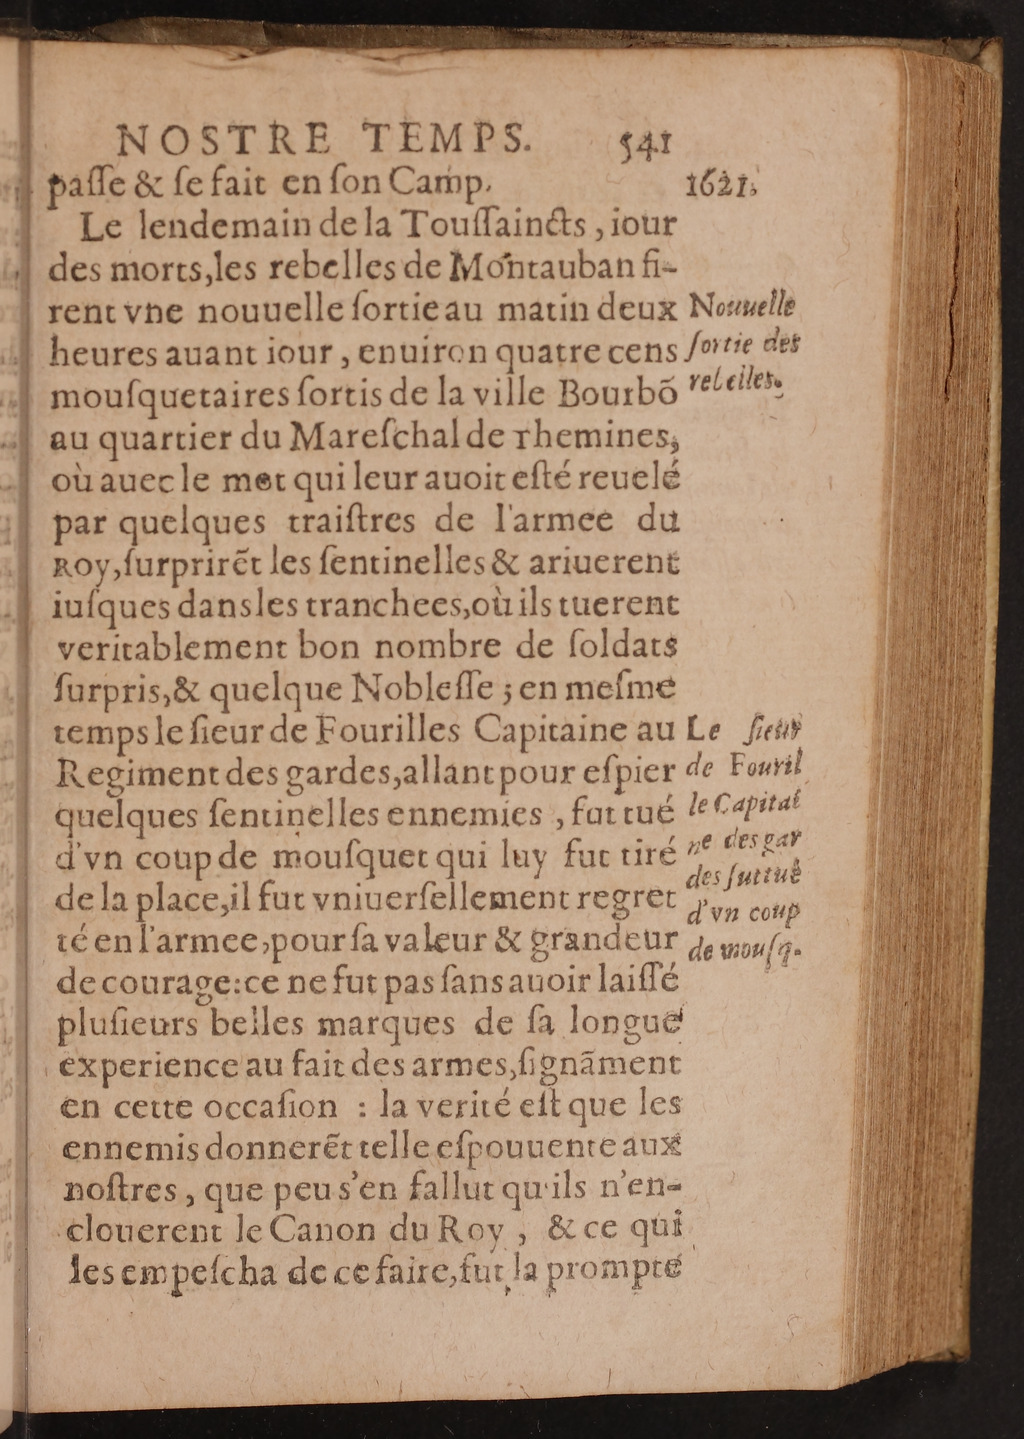 NOSTRE TEMPS. 541
paſſe & ſe fait en ſon Camp. 1621.
Le lendemain de la Touſſaincts, iour
des morts, les rebelles de Montauban fi-
rent vne nouuelle ſortie au matin deux
heures auant iour, enuiron quatre cens
mouſquetaires ſortis de la ville Bourbõ
au quartier du Mareſchal de Themines,
où auec le mot qui leur auoit eſté reuelé
par quelques traiſtres de l'armee du
Roy, ſurprirẽt les ſentinelles & ariuerent
iuſques dans les tranchees, où ils tuerent
veritablement bon nombre de ſoldats
ſurpris, & quelque Nobleſſe ; en meſme
temps le ſieur de Fourilles Capitaine au
Regiment des gardes, allant pour eſpier
quelques ſentinelles ennemies, fut tué
d'vn coup de mouſquet qui luy fut tiré
de la place, il fut vniuerſellement regret
té en l'armee, pour ſa valeur & grandeur
de courage: ce ne fut pas ſans auoir laiſſé
pluſieurs belles marques de ſa longue
experience au fait des armes, ſignãment
en cette occaſion : la verité eſt que les
ennemis donnerẽt telle eſpouuente aux
noſtres, que peu s'en fallut qu'ils n'en-
clouerent le Canon du Roy, & ce qui
les empeſcha de ce faire, fut la prompte
Nouuelle
ſortie des
rebelles.
Le ſieur
de Fouril
le Capitai
ne des gar
des fut tué
d'vn coup
de mouſq.